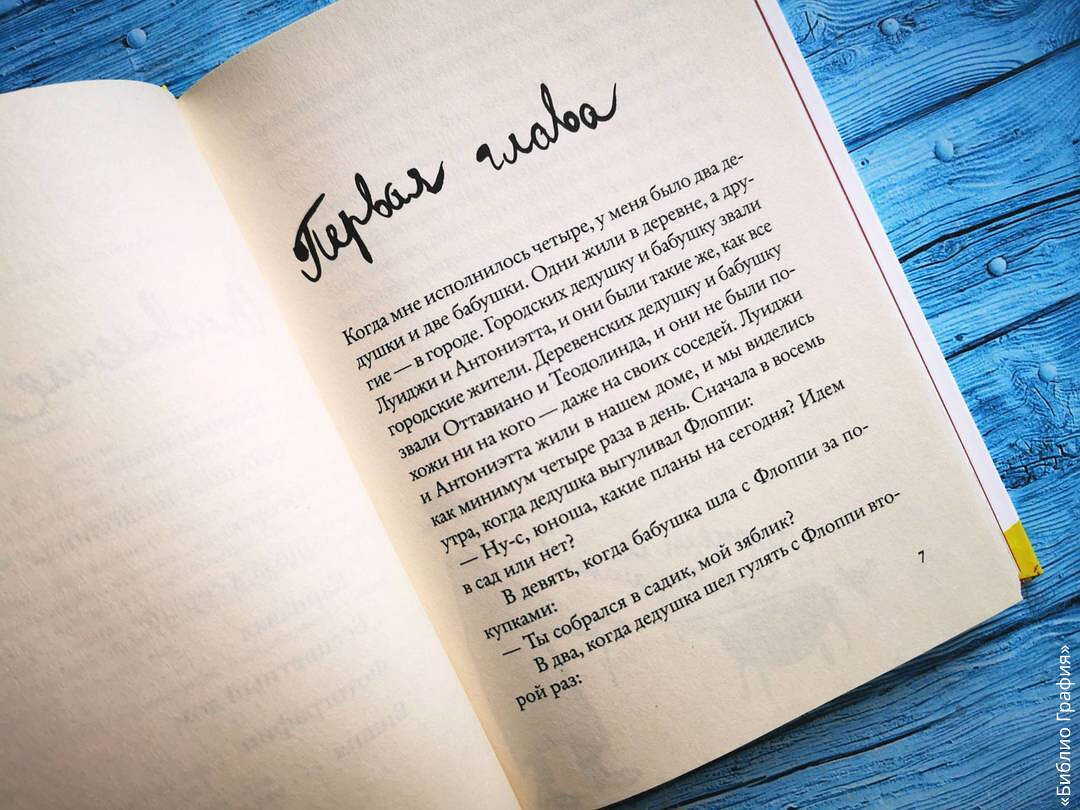 Первая глава
Когда мне исполнилось четыре, у меня было два де-
душки и две бабушки. Одни жили в деревне, а дру-
гие — в городе. Городских дедушку и бабушку звали
Луиджи и Антониэтта, и они были такие же, как все
городские жители. Деревенских дедушку и бабушку
звали Оттавиано и Теодолинда, и они не были по-
хожи ни на кого — даже на своих соседей. Луиджи
и Антониэтта жили в нашем доме, и мы виделись
как минимум четыре раза в день. Сначала в восемь
утра, когда дедушка выгуливал Флоппи:
— Ну-с, юноша, какие планы на сегодня? Идем
в сад или нет?
В девять, когда бабушка шла с Флоппи за по-
купками:
— Ты собрался в садик, мой зяблик?
В два, когда дедушка шел гулять с Флоппи вто-
рой раз:
7
«Библио Графия»